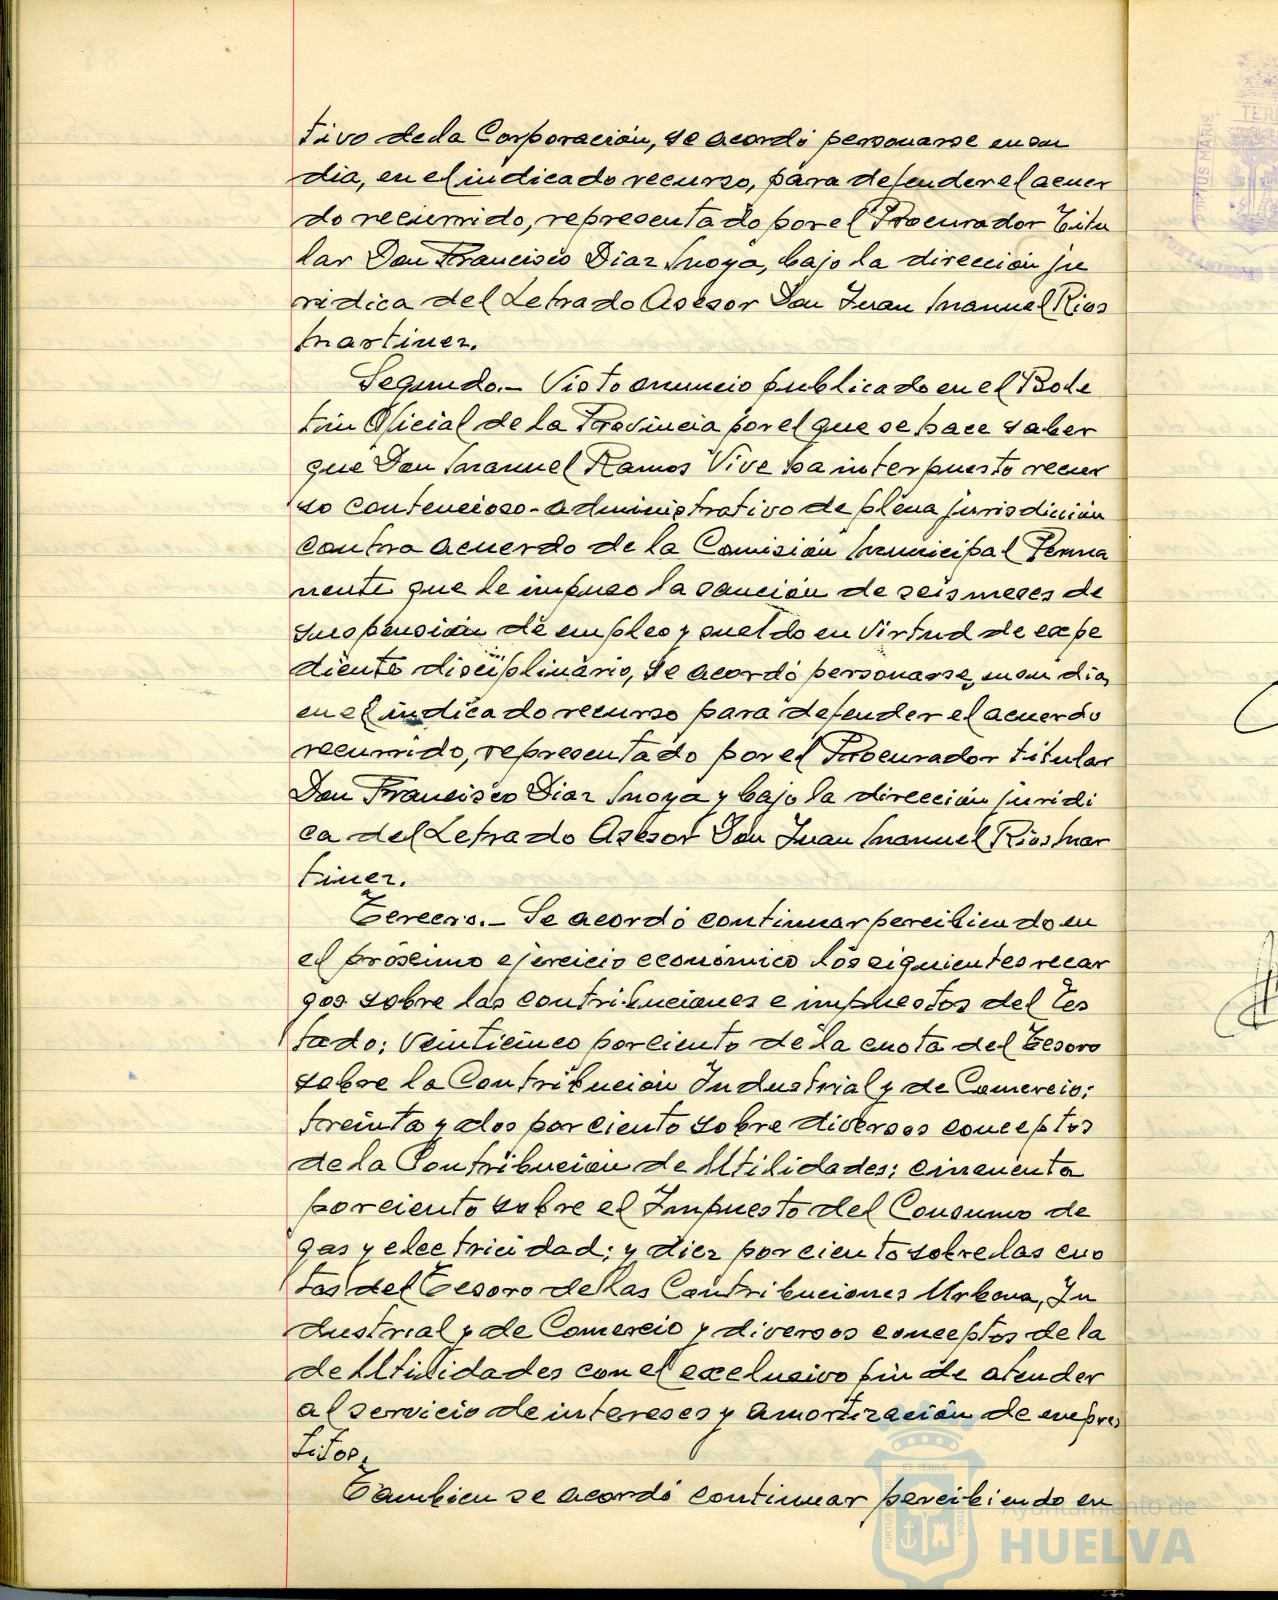 tivo de la Corporación, se acordó personarse en su
dia, en el indicado recurso, para defender el acuer
do recurrido, representado por el Procurador titu
lar Don Francisco Diaz Moya, bajo la dirección ju
ridica del Letrado Asesor Don Juan Manuel Rios
Martinez.
Segundo.- Visto anuncio publicado en el Bole
tin Oficial de la Provincia por el que se hace saber
que Don Manuel Ramos Vive ha interpuesto recur
so contencioso-administrativo de plena jurisdicion
contra acuerdo de la Comisión Municipal Perma
nente que le impuso la sanción de seis meses de
suspensión de empleo y sueldo en virtud de expe
diente disciplinario, se acordó personarse, en su dia,
en el indicado recurso para defender el acuerdo
recurrido, representado por el Procurador titular
Don Francisco Diaz Moya y bajo la dirección juridi
ca del Letrado Asesor Don Juan Manuel Rios Mar
tinez.
Tercero.- Se acordó continuar percibiendo en
el próximo ejercicio económico los siguientes recar
gos sobre las contribuciones e impuestos del Es
tado: Veinticinco por ciento de la cuota del Tesoro
sobre la Contribución Industrial y de Comercio;
treinta y dos por ciento sobre diversos conceptos
de la Contribución de Utilidades; cincuenta
por ciento sobre el Impuesto del Consumo de
gas y electricidad; y diez por ciento sobre las cuo
tas del Tesoro de las Contribuciones Urbana, In
dustrial y de Comercio y diversos conceptos de la
de Utilidades con el exclusivo fin de atender
al servicio de intereses y amortización de empres
titos.
Tambien se acordó continuar percibiendo en
Ayuntamiento de
HUELVA